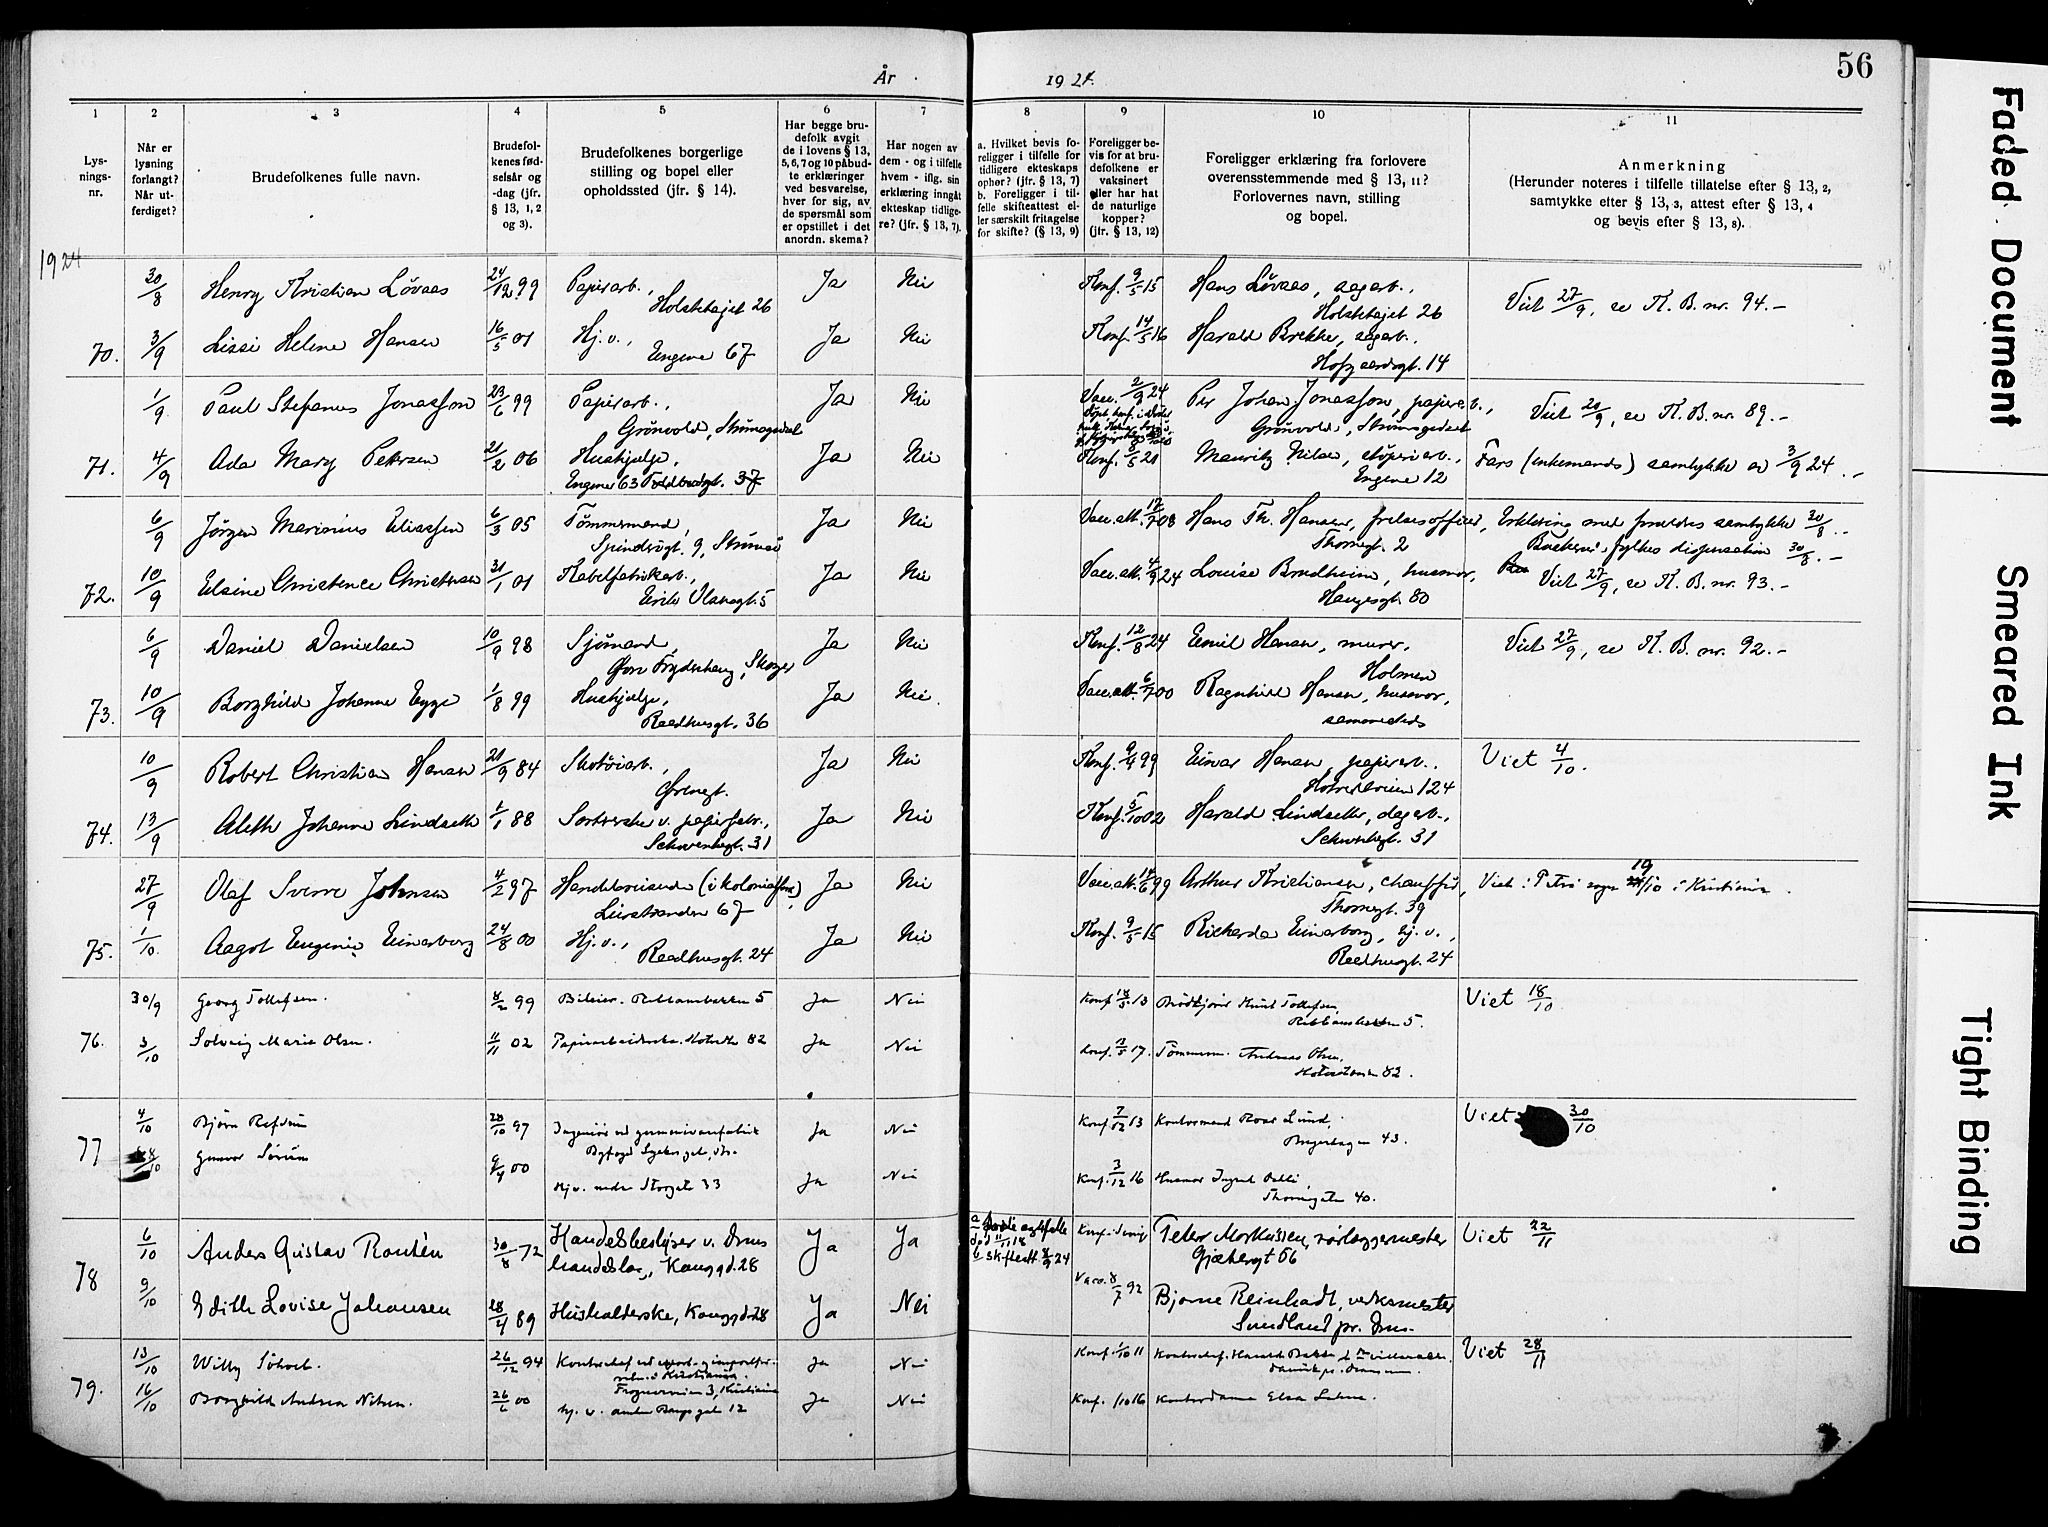 År
1924.
56
1
2
3
4
5
6
7
8
9
10
11
Lys-
nings-
nr.
Når er
lysning
forlangt?
Når ut-
ferdiget?
Brudefolkenes fulle navn.
Brudefol-
kenes fød-
selsår og
-dag (jfr.
§ 13, 1, 2
og 3).
Brudefolkenes borgerlige
stilling og bopel eller
opholdssted (jfr. § 14).
Har begge bru-
defolk avgit
de i lovens § 13,
5, 6, 7 og 10 påbud-
te erklæringer
ved besvarelse,
hver for sig, av
de spørsmål som
er opstillet i det
anordn. skema?
Har nogen av
dem - og i tilfelle
hvem - iflg. sin
erklæring inngåt
ekteskap tidlige-
re? (jfr. § 13, 7).
a. Hvilket bevis fo-
religger i tilfelle for
tidligere ekteskaps
ophør? (jfr. § 13, 7)
b. Foreligger i til-
felle skifteattest el-
ler særskilt fritagelse
for skifte? (§ 13, 9)
Foreligger be-
vis for at bru-
defolkene er
vaksinert
eller har hat
de naturlige
kopper?
(jfr. § 13, 12)
Foreligger erklæring fra forlovere
overensstemmende med § 13, 11?
Forlovernes navn, stilling
og bopel.
Anmerkning
(Herunder noteres i tilfelle tillatelse efter § 13, 2,
samtykke efter § 13, 3, attest efter § 13, 4
og bevis efter § 13, 8).
1924
30/8 Henry Kristian Løvaas 24/12 99 Papirarb., Ja Nei Konf. 9/5 15 Hans Løvaas, sagarb.,
Holstehøjet 26 Holstehøjet 26 Viet 27/9, se K. B. nr. 94.-
70. 3/9 Lissi Helene Hansen 16/5 01 Hj. v., Ja Nei Konf. 14/5 16 Harald Brekke, sagarb.,
Engene 67 Hofgaardsgt. 14
1/9 Paul Stefanus Jonassen 23/6 99 Papirarb., Ja Nei Vacc. 2/9 24 Per Johan Jonassen, papirarb.,
Grønvold, Strømsgodset Grønvold, Strømsgodset Viet 20/9, se K. B. nr. 89.-
71. 4/9 Ada Mary Petersen 21/2 06 Hushjelp, Ja Nei Konf. 21 Mauritz Nilsen, støperiarb., Fars (enkemands) samtykke av 3/9 24.-
Engene 63 Toldbodgt. 37 Engene 12
6/9 Jørgen Marinius Eliassen 6/3 05 Tømmermand, Ja Nei Vacc. att. 17/7 08 Hans Th. Hansen, frelsesoffiser, Erklæring med foreldres samtykke 30/8.-
Spindrsgt. 9, Strømsø Thornegt. 2 Buskerud fylkes dispensation 30/8.-
72. 10/9 Elsine Christence Christensen 31/1 01 Kabelfabrikarb., Ja Nei Vacc. att. 4/9 24 Louise Brudheim, husmor, Viet 27/9, se K. B. nr. 93.-
Eriks Olsensgt. 5 Haugesgt. 80
6/9 Daniel Danielsen 10/9 98 Sjømand, Ja Nei Konf. 12/8 24 Emil Hansen, murer, Viet 27/9, se K. B. nr. 92.-
Øvre Frydenhaug, Skoger Holmen
73. 10/9 Borghild Johanne Egge 1/8 99 Hushjelp, Ja Nei. Vacc. att. 6/7 00 Ragnhild Hansen, husmor,
Raadhusgt. 36 sammesteds
10/9 Robert Christian Hansen 21/9 84 Skotøiarb., Ja Nei Konf. 9/4 99 Einar Hansen, papirarb., Viet 4/10.
Ørengt. Hotvedtveien 124
74. 13/9 Aleth Johanne Lindseth 1/1 88 Sorterske v. papirfabr., Ja Nei Konf. 5/10 02 Harald Lindseth, dagarb.,
Schwenckegt. 31 Schwenckegt. 31
27/9 Olaf Sverre Johnsen 4/2 97 Handelsreisende (i kolonialforr.), Ja Nei Vacc. att. 14/6 99 Arthur Kristiansen, chauffør, Viet i Petri sogn 19/10 i Kristiania.
Lierstranden 67 Thornegt. 39
75. 1/10. Aagot Eugenie Einarborg 24/8 00 Hj. v., Ja Nei Konf. 9/5 15 Rikarda Einarborg, hj. v.,
Raadhusgt. 24 Raadhusgt. 24
30/9 Georg Tollefsen. 4/2 99 Bileier. Ribbansbakken 5 Ja Nei Konf 18/5 13 Brødkjører Knut Tollefsen, Viet 18/10
Ribbansbakken 5.
76. 3/10 Solveig Marie Olsen. 11/11 02 Papirarbeiderske. Hotvedtv 82 Ja Nei Konf. 17. Tømmerm. Andreas Olsen,
Hotvedtveien 82.
77 4/10 Bjørn Refsum 28/10 97 Ingeniør ved Ja Nei Konf 7/12 13 Kontormand Roar Lund, Viet 30/10
Bragerhagen 43.
8/10 Gunvor Sørum 9/4 00 Hj. v. nedre Storgate 33 Ja Nei Konf. 3/12 16 Husmor Ingrid
Thornegaten 40.
6/10 Anders Gustav Rontén 30/8 72 Handelsbestyrer v. Drms Ja Ja død 11/11 18 Konf. Peter Morthisen, rørlæggermester Viet 22/11
handelslag, Konggd. 28 b skifteatt 24 Gjetergt 56
78 9/10 Edith Lovise Johansen 28/4 89 Husholderske, Konggd. 28 Ja Nei Vacc. 8/7 92 Bjarne Reinhardt, verksmester
Sundland pr. Drm.
13/10 Willy 26/12 94 Kontorchef ved Ja Nei Konf. 1/10 11 Kontorchef. Harald Viet 28/11
i Kristiania.
Frognerveien 3, Kristiania
79. 16/10 Borghild Andrea Nilsen. 26/6 00 Hj. v. 12 Ja Nei Konf. /10 16 Kontordame Elsa
Faded Document
Smeared Ink
Tight Binding